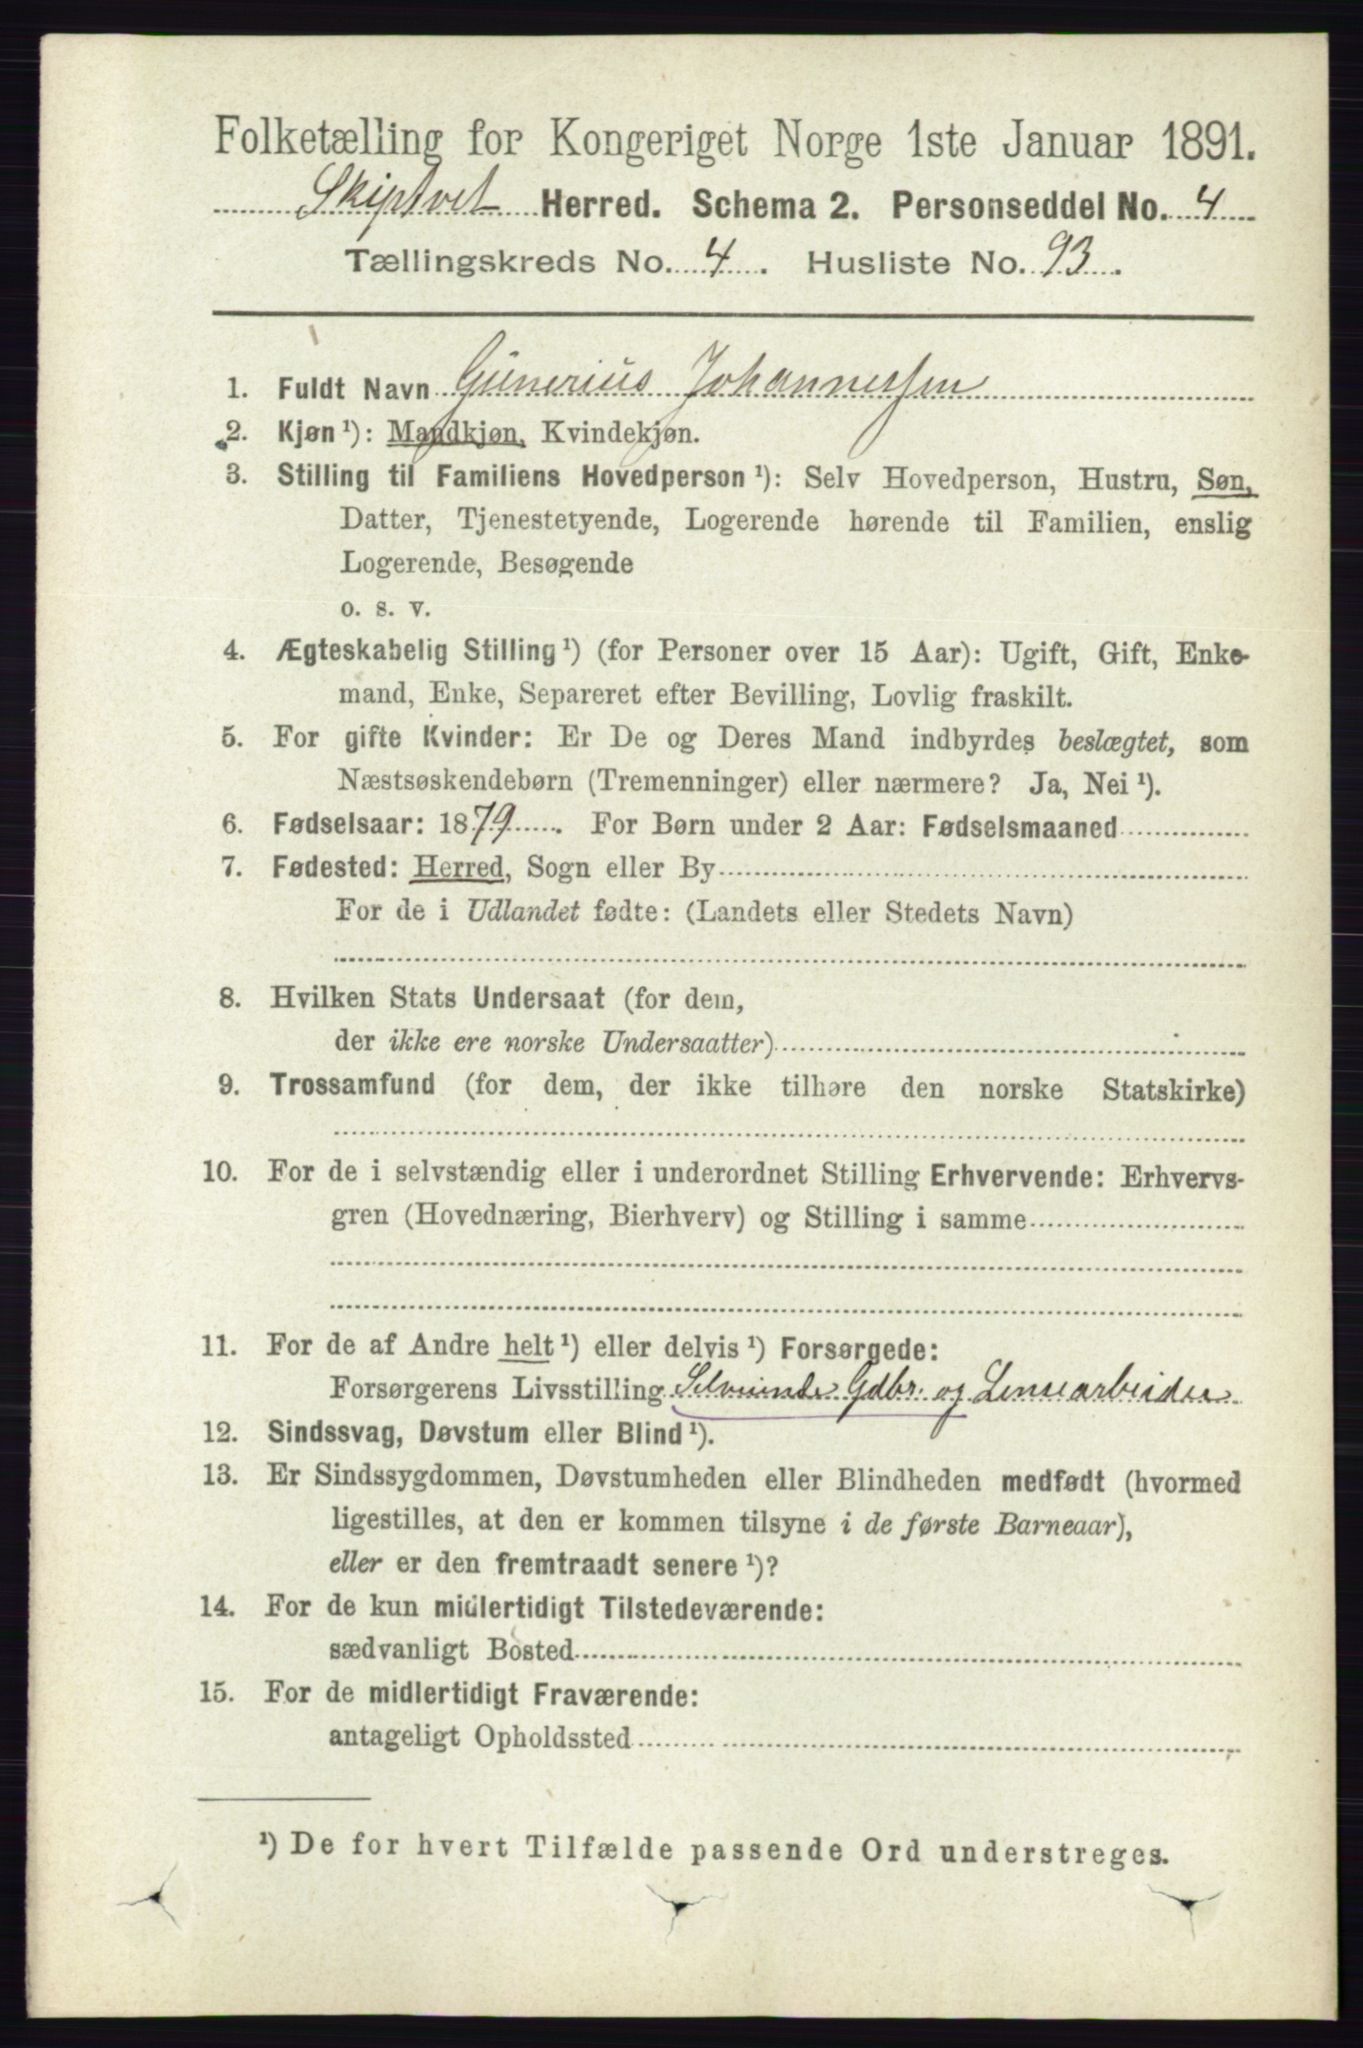 Folketælling for Kongeriget Norge 1ste Januar 1891.
Skiptvet Herred. Schema 2. Personseddel No. 4
Tællingskreds No. 4. Husliste No. 93.
1. Fuldt Navn Gunerius Johannessen
2. Kjøn ¹): Mandkjøn, Kvindekjøn.
3. Stilling til Familiens Hovedperson ¹): Selv Hovedperson, Hustru, Søn,
Datter, Tjenestetyende, Logerende hørende til Familien, enslig
Logerende, Besøgende
o. s. v.
4. Ægteskabelig Stilling ¹) (for Personer over 15 Aar): Ugift, Gift, Enke-
mand, Enke, Separeret efter Bevilling, Lovlig fraskilt.
5. For gifte Kvinder: Er De og Deres Mand indbyrdes beslægtet, som
Næstsøskendebørn (Tremenninger) eller nærmere? Ja, Nei ¹).
6. Fødselsaar: 1879. For Børn under 2 Aar: Fødselsmaaned
7. Fødested: Herred, Sogn eller By
For de i Udlandet fødte: (Landets eller Stedets Navn)
8. Hvilken Stats Undersaat (for dem,
der ikke ere norske Undersaatter)
9. Trossamfund (for dem, der ikke tilhøre den norske Statskirke)
10. For de i selvstændig eller i underordnet Stilling Erhvervende: Erhvervs-
gren (Hovednæring, Bierhverv) og Stilling i samme
11. For de af Andre helt ¹) eller delvis ¹) Forsørgede:
Forsørgerens Livsstilling Selveiende Gdbr. og Lensearbeider
12. Sindssvag, Døvstum eller Blind ¹).
13. Er Sindssygdommen, Døvstumheden eller Blindheden medfødt (hvormed
ligestilles, at den er kommen tilsyne i de første Barneaar),
eller er den fremtraadt senere ¹)?
14. For de kun midlertidigt Tilstedeværende:
sædvanligt Bosted
15. For de midlertidigt Fraværende:
antageligt Opholdssted
¹) De for hvert Tilfælde passende Ord understreges.